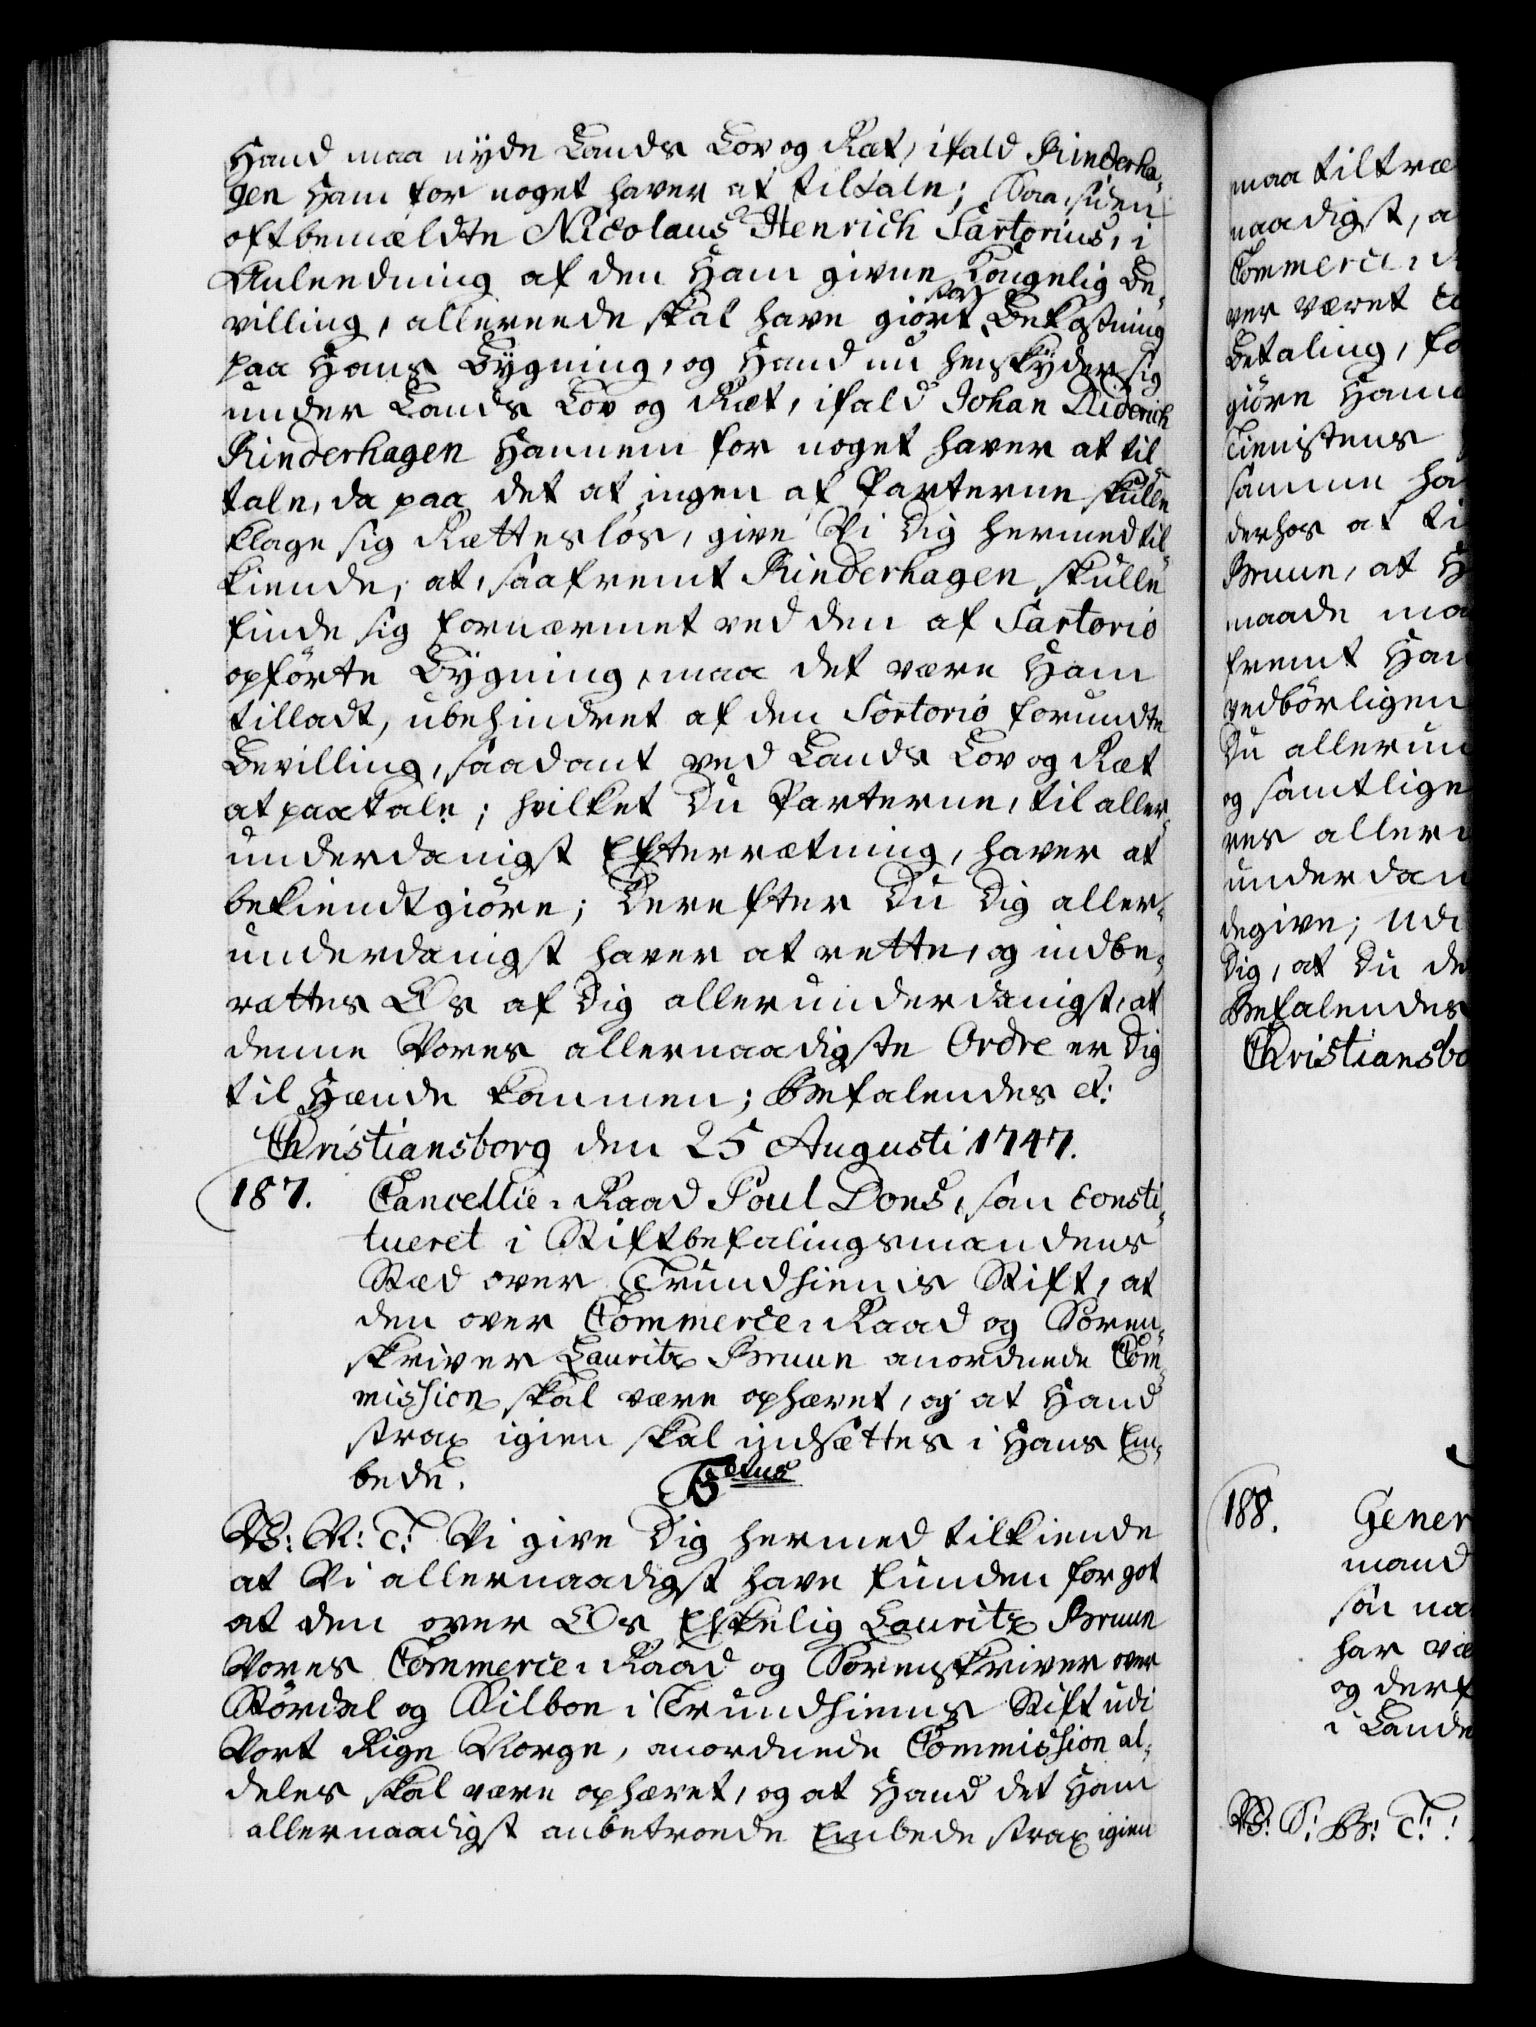 Hand maa nyde Lands Lov og Ræt, ifald Rinderha-
gen Ham for noget haver at tiltale; Saa siden
oftbemældte Nicolaus Henrich Sartorius, i
Anledning af den Ham givne Kongelig Be-
villing, allereede skal have giört stor Bekostning
paa Hans Bygning, og Hand nu henskyder sig
under Lands Lov og Ræt, ifald Johan Diderich
Rinderhagen Hannem for noget haver at til-
tale, da paa det at ingen af Parterne skulle
klage sig Rættesløs, give Vi Dig hermed til-
kiende, at, saafremt Rinderhagen skulle
finde sig fornærmet ved den af Sartorio
opförte Bygning, maa det være Ham
tilladt, ubehindret af den Sartorio forundte
Bevilling, saadant ved Lands Lov og Ræt
at paatale; hvilket Du Parterne, til aller-
underdanigst Efterrætning, haver at
bekiendtgiöre; Derefter Du Dig aller-
underdanigst haver at rette, og indbe-
rættes Os af Dig allerunderdanigst, at
denne Vores allernaadigste Ordre er Dig
til Hænde kommen; Befalendes et:
Christiansborg den 25 Augusti 1747.
187. Cancellie-Raad Poul Dons, som consti-
tueret i Stiftbefalingsmandens
Stæd over Trundhiems Stift, at
den over Commerce-Raad og Soren-
skriver Lauritz Bruun anordnede Com-
mission skal være ophævet, og at Hand
strax igien skal indsættes i Hans Em-
bede.
V: N: T: Vi give Dig hermed tilkiende
at Vi allernaadigst have funden for got
at den over Os Elskelig Lauritz Bruun
Vores Commerce-Raad og Sorenskriver over
Stördal og Wilboe i Trundhiems Stift udi
Vort Rige Norge, anordnede Commission al-
deles skal være ophævet, og at Hand det Ham
allernaadigst anbetroede Embede strax igien
maa tiltræ
naadigst, a
Commerce-R
ver været co
Betaling, fo
giöre Ham
Tienistens
samme ha
derhos at ti
Bruun, at H
maade ma
fremt Han
vedbörligen
Du allerun
og samtlige
res aller
underdan
degive; Udi
Dig, at Du de
Befalendes
Christiansbo
188. Gener
mand
son na
har væ
og derf
i Lande
V: S: B: T: